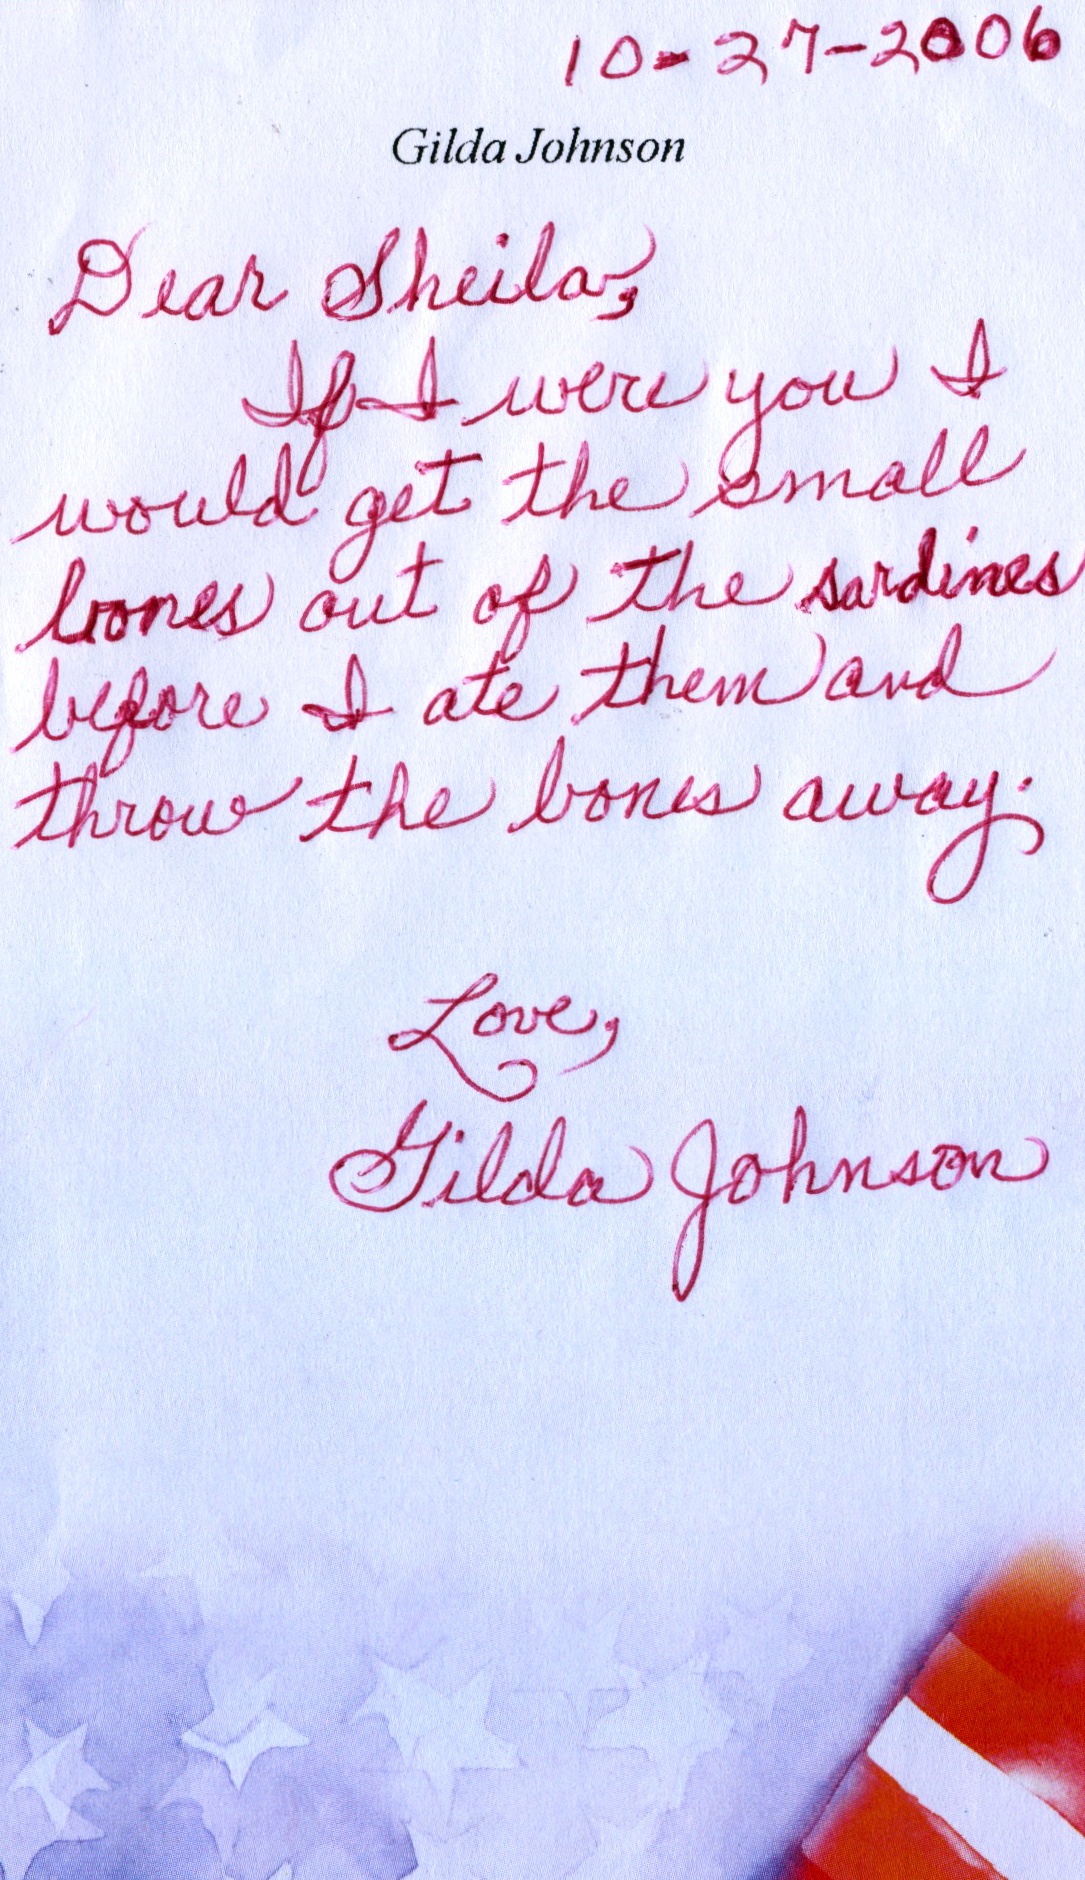 10-27-2006
Gilda Johnson
Dear Sheila,
If I were you I
would get the small
bones out of the sardines
before I ate them and
throw the bones away.
Love,
Gilda Johnson